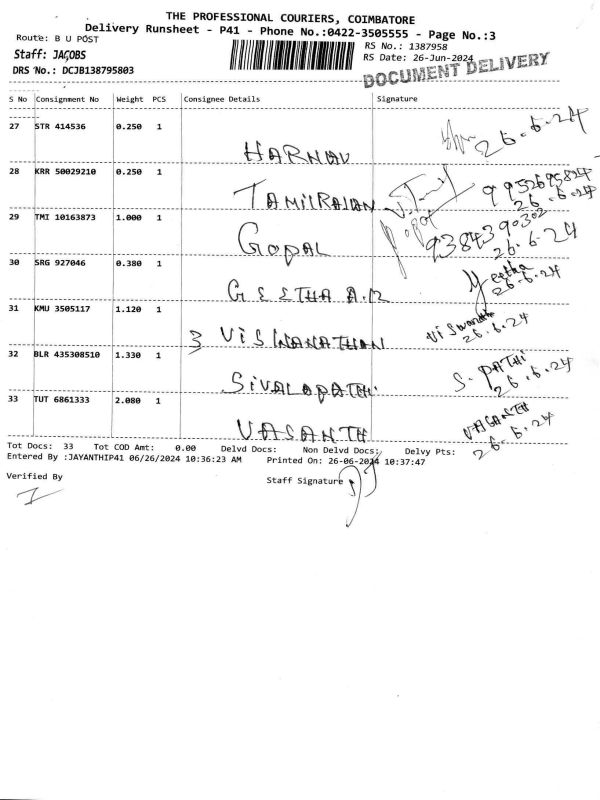 THE PROFESSIONAL COURIERS, COIMBATORE
Delivery Runsheet - P41 - Phone No.:0422-3505555 - Page No.:3
Route: B U POST
RS No.: 1387958
Staff: JACOBS
RS Date: 26-Jun-2024
DRS No.: DCJB138795803
DOCUMENT DELIVERY
S No Consignment No Weight PCS Consignee Details Signature
27 STR 414536 0.250 1
HARNAV 26.6.24
28 KRR 50029210 0.250 1
TAMILRAJAN 9952695824
26.6.24
29 TMI 10163873 1.000 1
GOPAL Gopal 9384390302
26.6.24
30 SRG 927046 0.380 1
GEETHA A.R Geetha
26.6.24
31 KMU 3505117 1.120 1
3 VISWANATHAN Viswanathan
26.6.24
32 BLR 435308510 1.330 1
SIVALOPATHI S. PATHI
26.6.24
33 TUT 6861333 2.080 1
VASANTH VASANTH
26.6.24
Tot Docs: 33 Tot COD Amt: 0.00 Delvd Docs: Non Delvd Docs: Delvy Pts:
Entered By :JAYANTHIP41 06/26/2024 10:36:23 AM Printed On: 26-06-2024 10:37:47
Verified By
Staff Signature